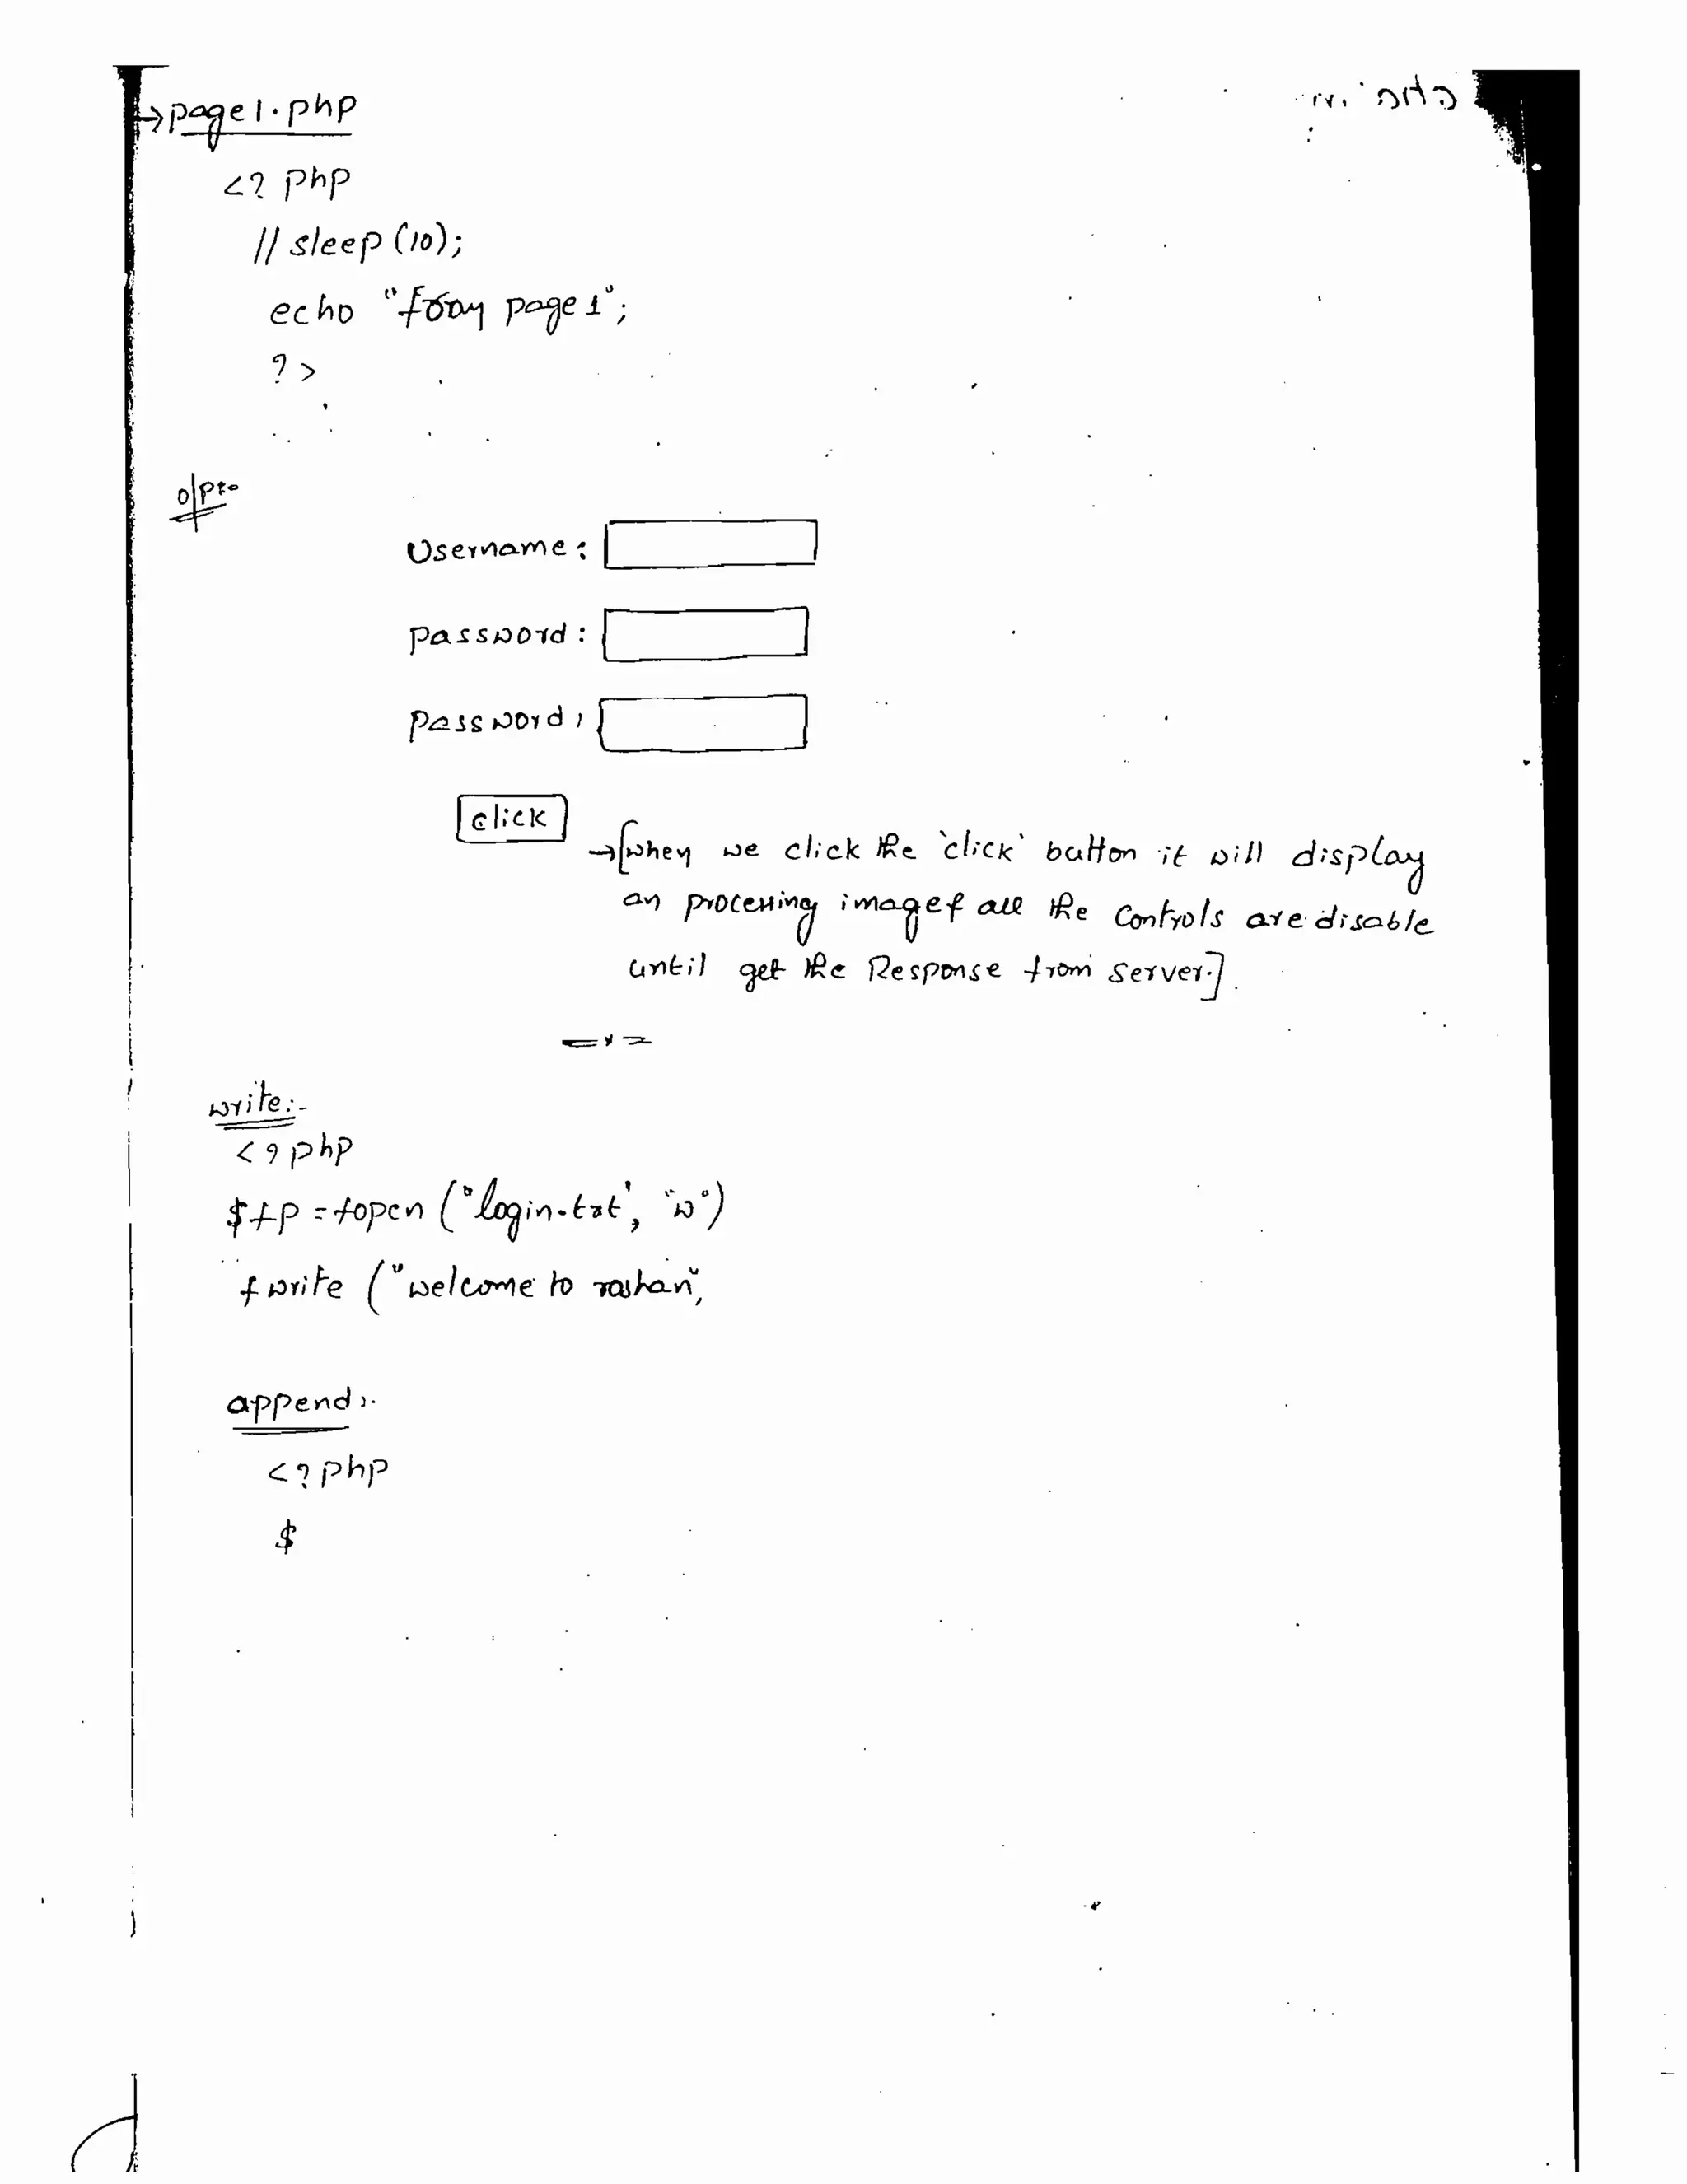 →page1.php
<? php
// sleep (10);
echo "from page 1";
?>
o/p:-
Username :
password :
password :
click
→[when we click the 'click' button it will display
an processing image & all the Controls are disable
until get the Response from server.]
=x=
write:-
<? php
$fp = fopen ("login.txt", "w")
fwrite ("welcome to roshan",
append:-
<? php
$